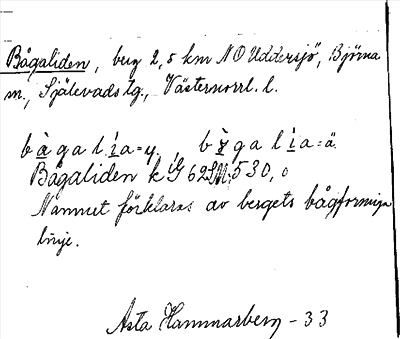 Bågaliden, berg 2,5 km NO Uddersjö, Björna
sn., Själevads tg., Västernorrl. l.
bàgalia=y., bøgalia=ä
Bågaliden k G 62 530,0
Namnet förklaras av bergets bågformiga
linje.
Asta Hammarberg - 33